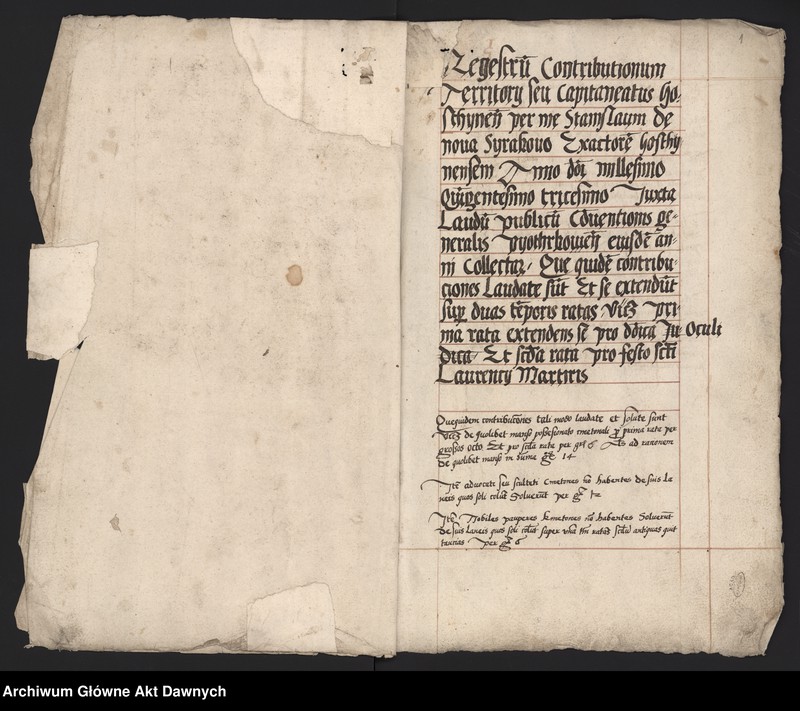 1
Regestrũ Contributionum
Territorÿ seu Capitaneatus Go-
schynen̄ per me Stanislaum de
nova Syrakovo Exactorē Gosthy
nensem Anno dn̄i millesimo
Quĩgentesimo tricesimo Juxta
Laudũ publicũ Cõventionis ge-
neralis pyothrkowien̄ eiusdē an-
ni Collectar. Que quidē contribu-
ciones Laudate sũt Et se extendũt
sup duas tēporis ratas vicz pri
ma rata extendens se pro dn̄ica In Oculi
dn̄ica Et scđa rata pro festo scti
Laurencÿ Martiris
Quequidem contribuciones tali modo laudate et solute sunt
vicz de quolibet manso possessionato cmetonali p̱ prima rate per
grossos octo Et pro scđa rate per gr̃ 6 Ad racionem
de quolibet manso in sum̄a gr̃ 14
Itē advocati seu sculteti cmetones nō habentes de suis La
neis quos soli colũt Solverũt per gr̃
Itē Nobiles pauperes kmetones nō habentes Solverũt
de suis Laneis quos soli colũt super una tm̄ ratas scđm antiquas quit
tancias per gr̃ 6
Archiwum Główne Akt Dawnych